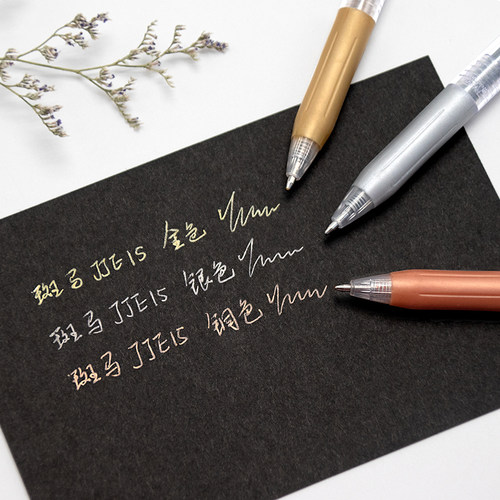 斑马 JJE15 金色
斑马 JJE15 银色
斑马 JJE15 铜色